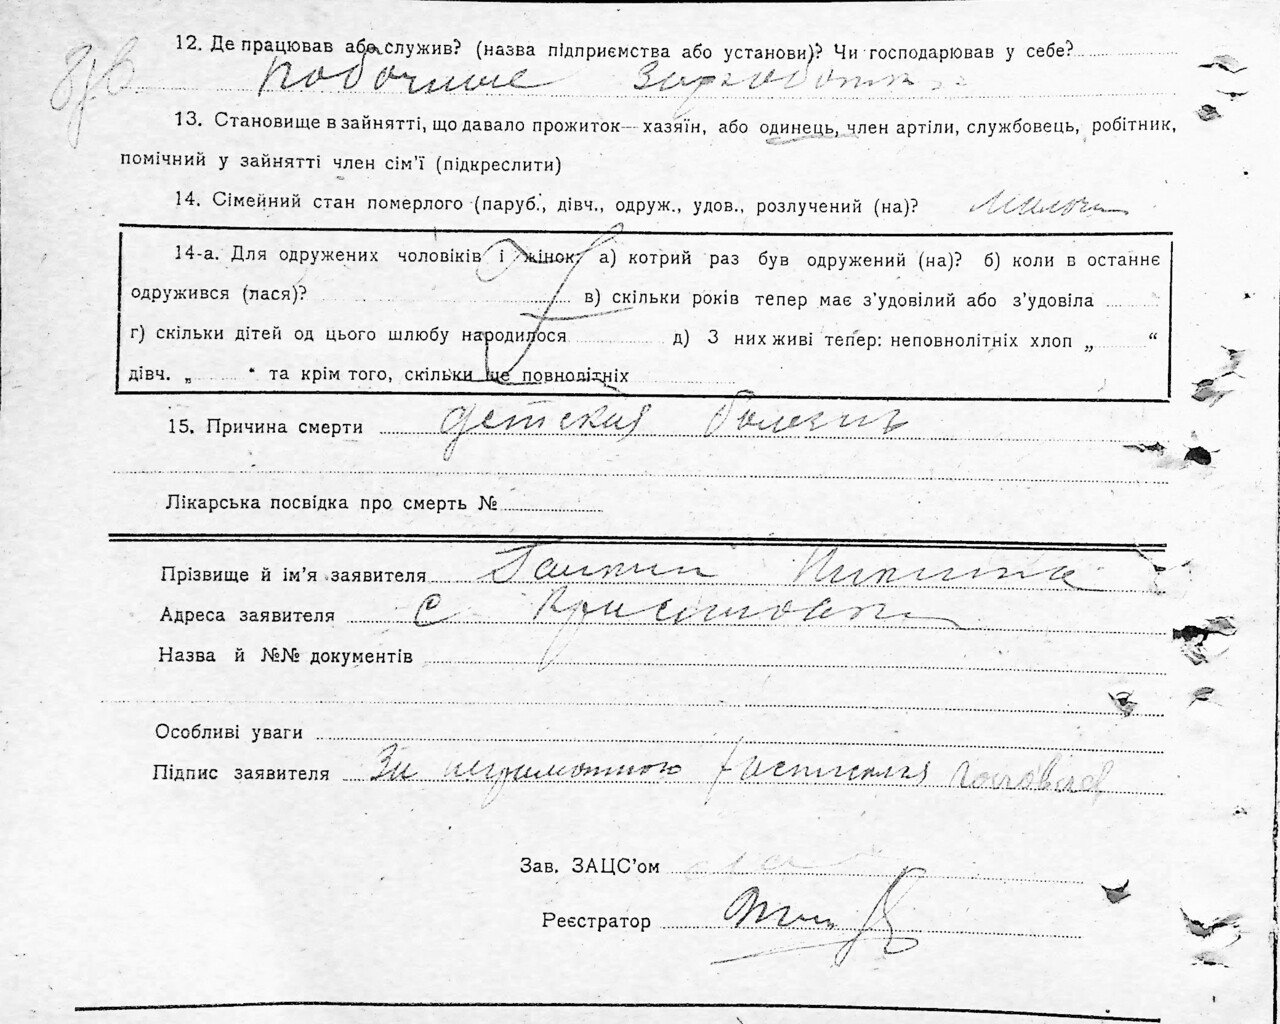 12. Де працював або служив? (назва підприємства або установи)? Чи господарював у себе?
побочные заработки
13. Становище в зайнятті, що давало прожиток—хазяїн, або одинець, член артіли, службовець, робітник,
помічний у зайнятті член сім’ї (підкреслити)
14. Сімейний стан померлого (паруб., дівч., одруж., удов., розлучений (на)?
14-а. Для одружених чоловіків і жінок: а) котрий раз був одружений (на)? б) коли в останнє
одружився (лася)? в) скільки років тепер має з’удовілий або з’удовіла
г) скільки дітей од цього шлюбу народилося д) З них живі тепер: неповнолітніх хлоп „ “
дівч. „ “ та крім того, скільки ще повнолітніх
15. Причина смерти детская болезнь
Лікарська посвідка про смерть №
Прізвище й ім’я заявителя Никита
Адреса заявителя с
Назва й №№ документів
Особливі уваги
Підпис заявителя За неграмотного расписался
Зав. ЗАЦС’ом
Реєстратор